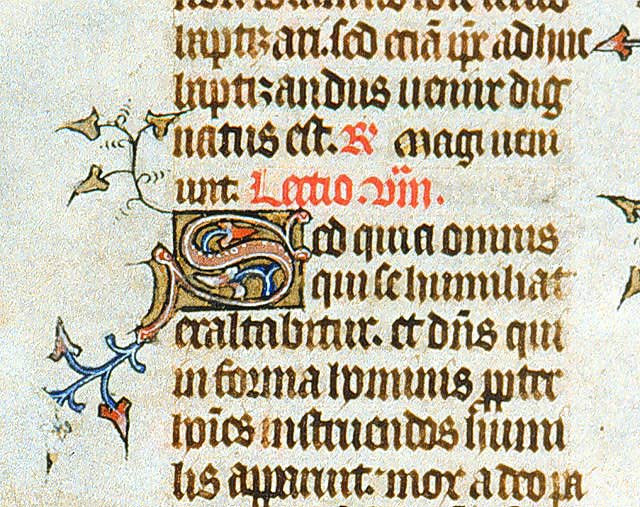 baptizari. sed etiā qr̄ adhuc
baptizandus uenire dig
natus est. R̸ Magi ueni
unt. Lectio .viii.
Sed quia omnis
qui se humiliat
exaltabitur. et dn̄s qui
in forma hominis ꝓpter
hoīēs instruendos humi
lis apparuit. mox a deo pa